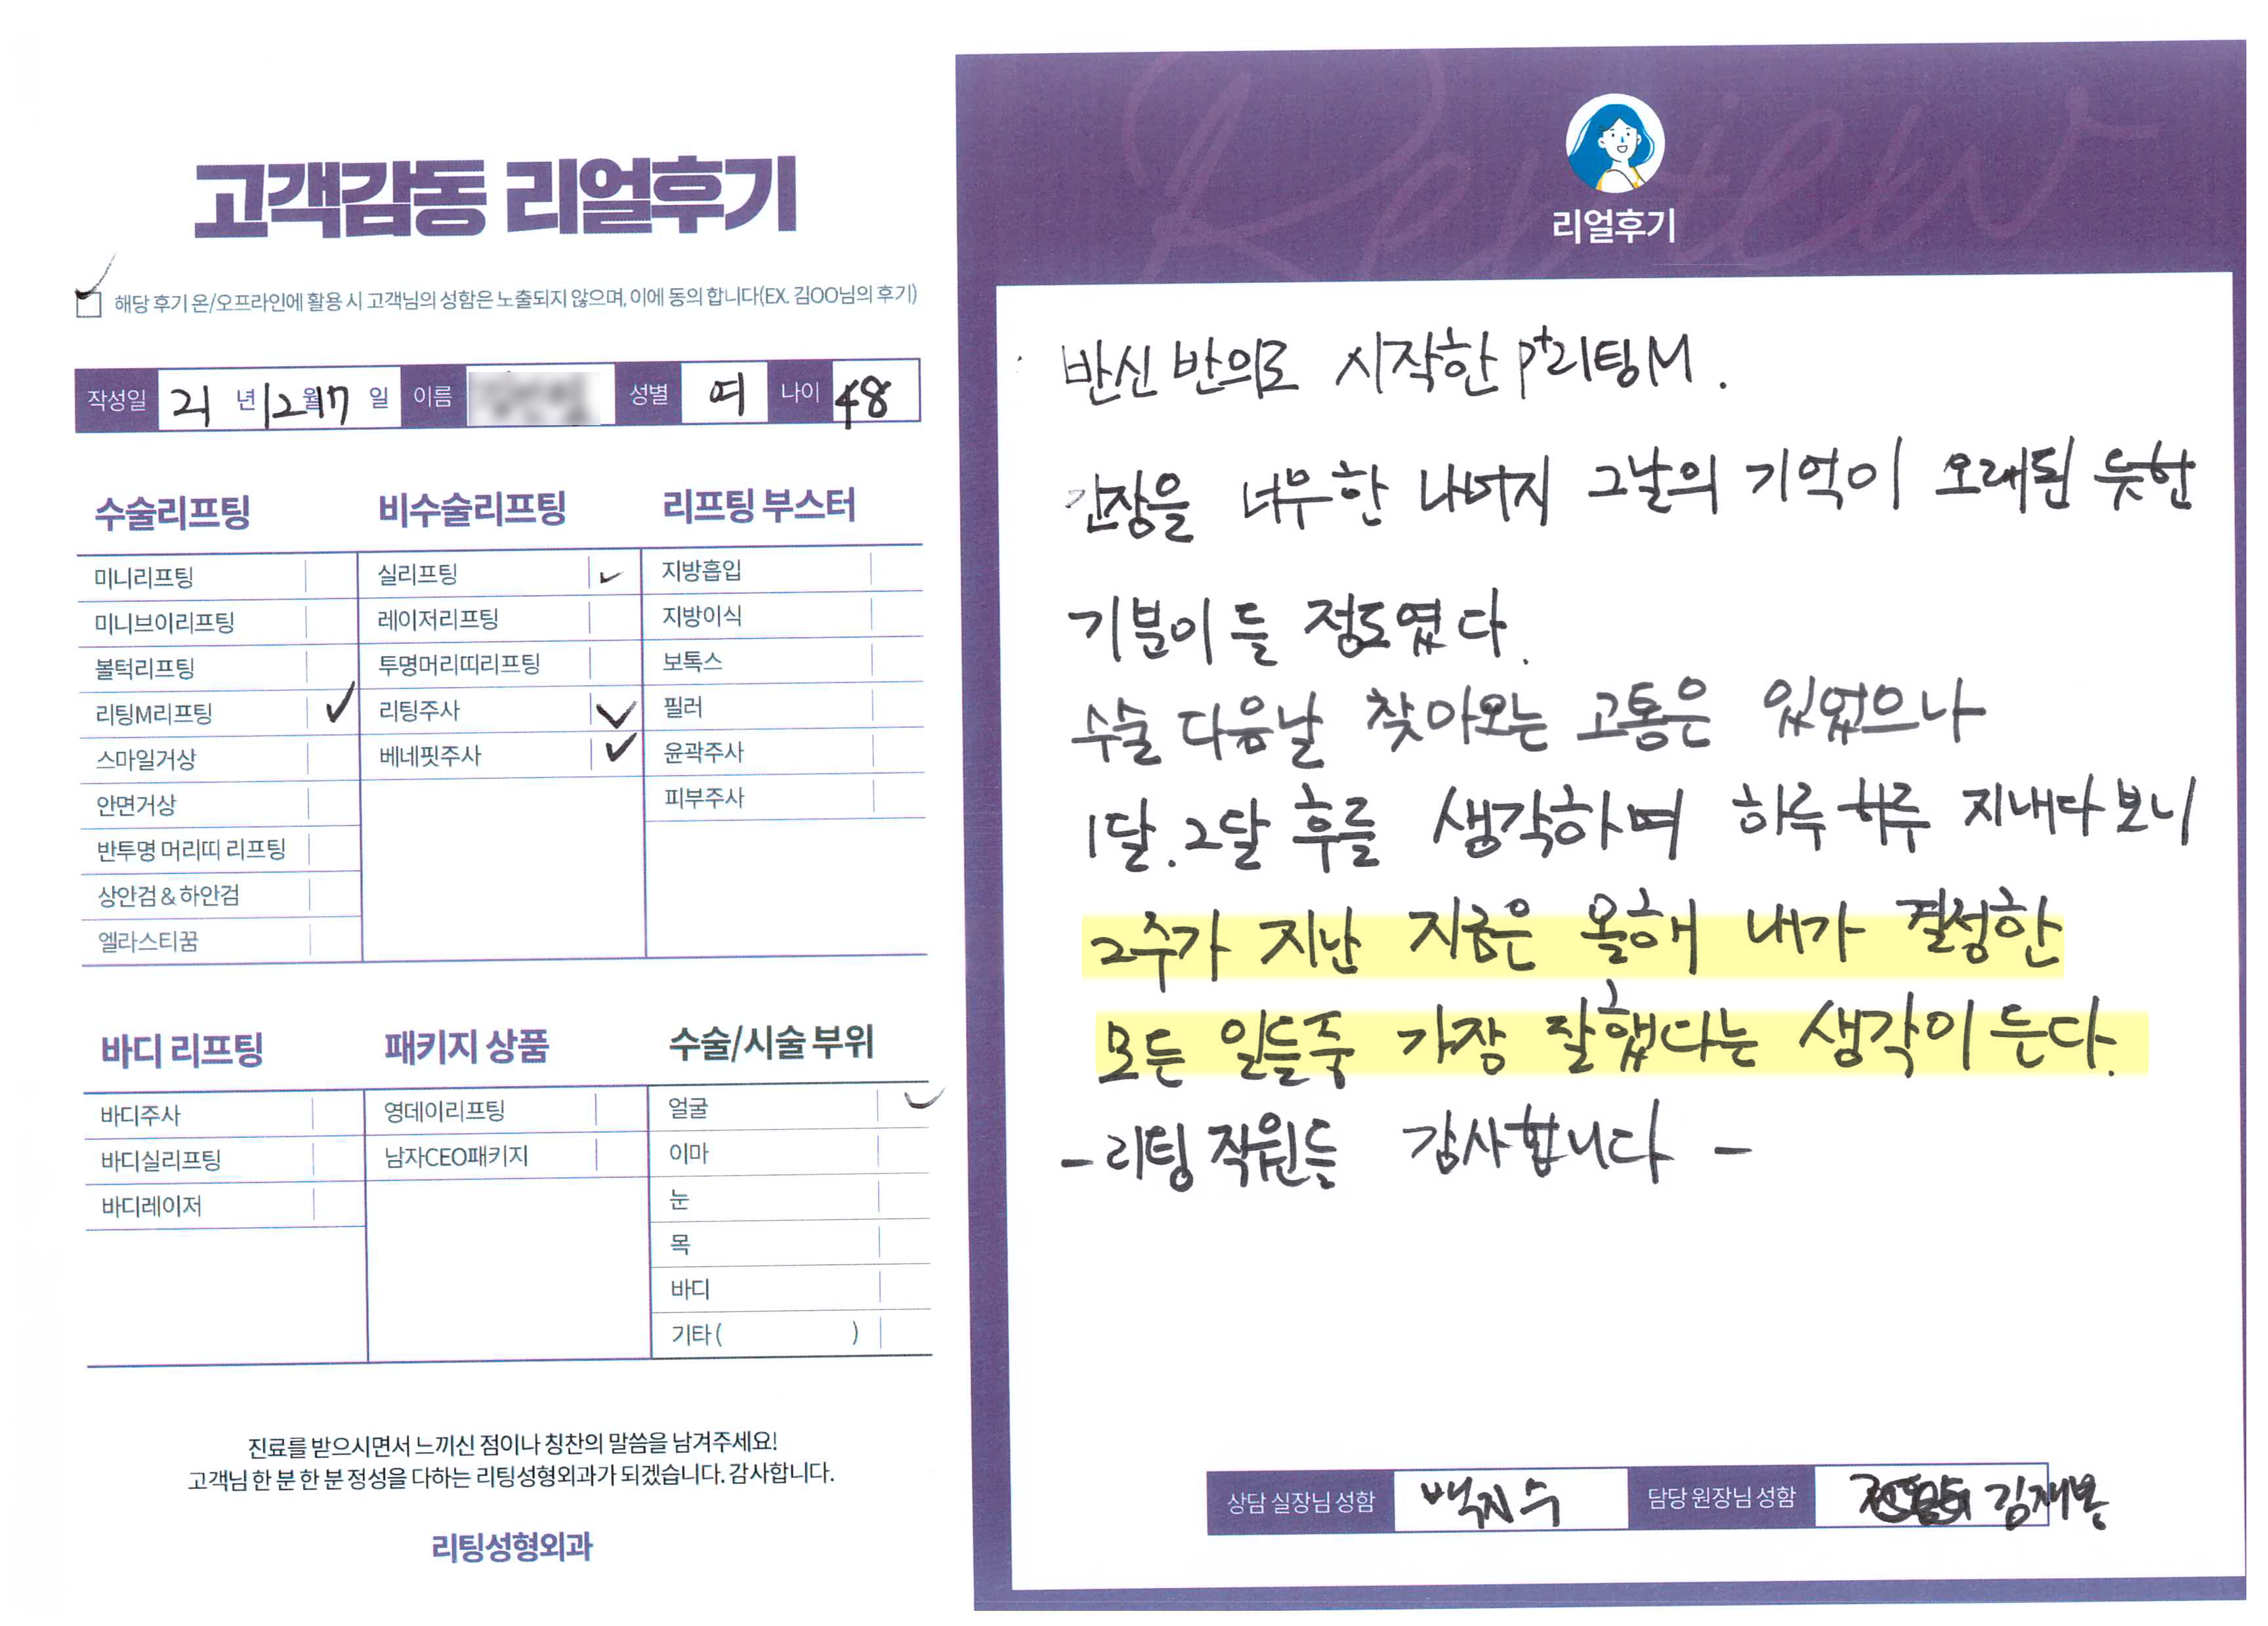 고객감동 리얼후기
해당 후기 온/오프라인에 활용 시 고객님의 성함은 노출되지 않으며, 이에 동의 합니다(EX. 김OO님의 후기)
작성일 21 년 12 월 17 일 이름 성별 여 나이 48
수술리프팅
미니리프팅
미니브이리프팅
볼턱리프팅
리팅M리프팅
스마일거상
안면거상
반투명 머리띠 리프팅
상안검 & 하안검
엘라스티꿈
비수술리프팅
실리프팅
레이저리프팅
투명머리띠리프팅
리팅주사
베네핏주사
리프팅 부스터
지방흡입
지방이식
보톡스
필러
윤곽주사
피부주사
바디 리프팅
바디주사
바디실리프팅
바디레이저
패키지 상품
영데이리프팅
남자CEO패키지
수술/시술 부위
얼굴
이마
눈
목
바디
기타 ( )
진료를 받으시면서 느끼신 점이나 칭찬의 말씀을 남겨주세요!
고객님 한 분 한 분 정성을 다하는 리팅성형외과가 되겠습니다. 감사합니다.
리팅성형외과
Review
리얼후기
반신 반의로 시작한 P+리팅M.
긴장을 너무한 나머지 그날의 기억이 오래된 듯한
기분이 들 정도였다.
수술 다음날 찾아오는 고통은 있었으나
1달.2달 후를 생각하며 하루 하루 지내다 보니
2주가 지난 지금은 올해 내가 결정한
모든 일들중 가장 잘했다는 생각이 든다.
- 리팅 직원들 감사합니다 -
상담 실장님 성함 백지수 담당 원장님 성함 김재봉